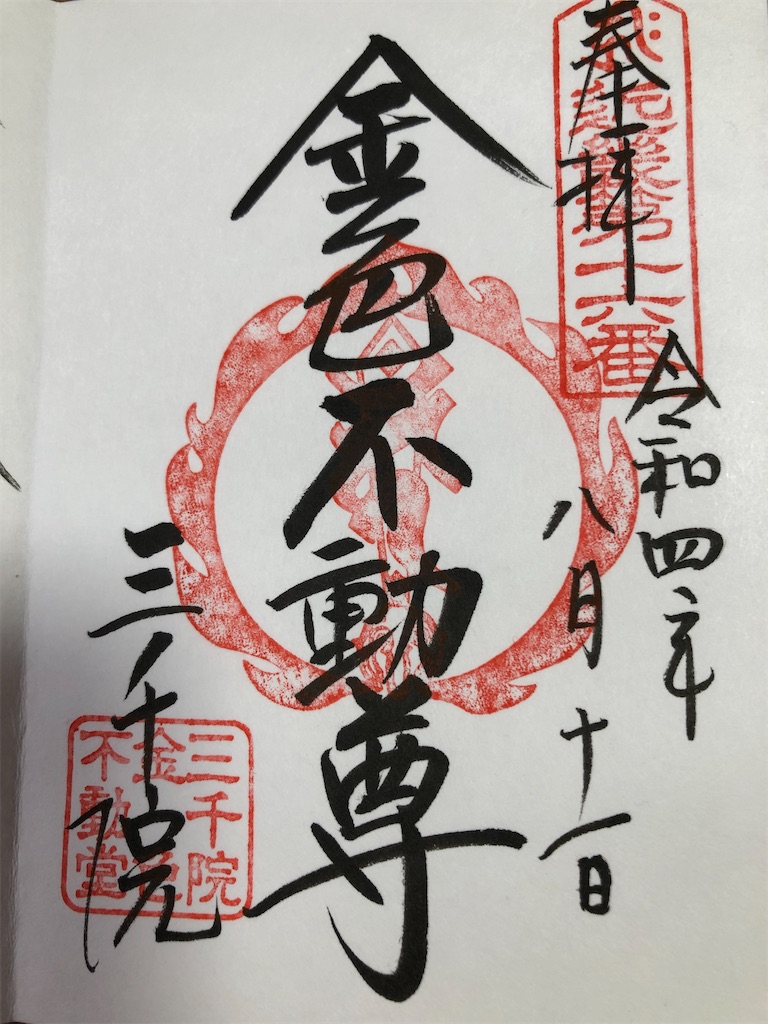 奉拝
近畿第十六番
令和四年
八月十一日
金色不動尊
三千院
三千院
金色
不動堂